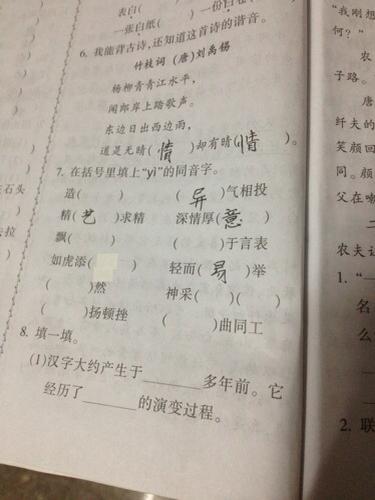 表白( ) 一份白
一张白纸( )
6. 我能背古诗,还知道这首诗的谐音。
竹枝词 (唐)刘禹锡
杨柳青青江水平,
闻郎岸上踏歌声。
东边日出西边雨,
道是无晴(情)却有晴(情)。
7. 在括号里填上“yì”的同音字。
造( ) (异)气相投
精(艺)求精 深情厚(意)
飘( ) ( )于言表
如虎添( ) 轻而(易)举
( )然 神采( )( )
( )扬顿挫 ( )曲同工
8. 填一填。
(1)汉字大约产生于______多年前。它
经历了______的演变过程。
石头
拉
“我刚想
何?”
子路。
唐
纤夫的
笑颜回
同。颜
父在
二
农夫
1. “
名
么
2. 联